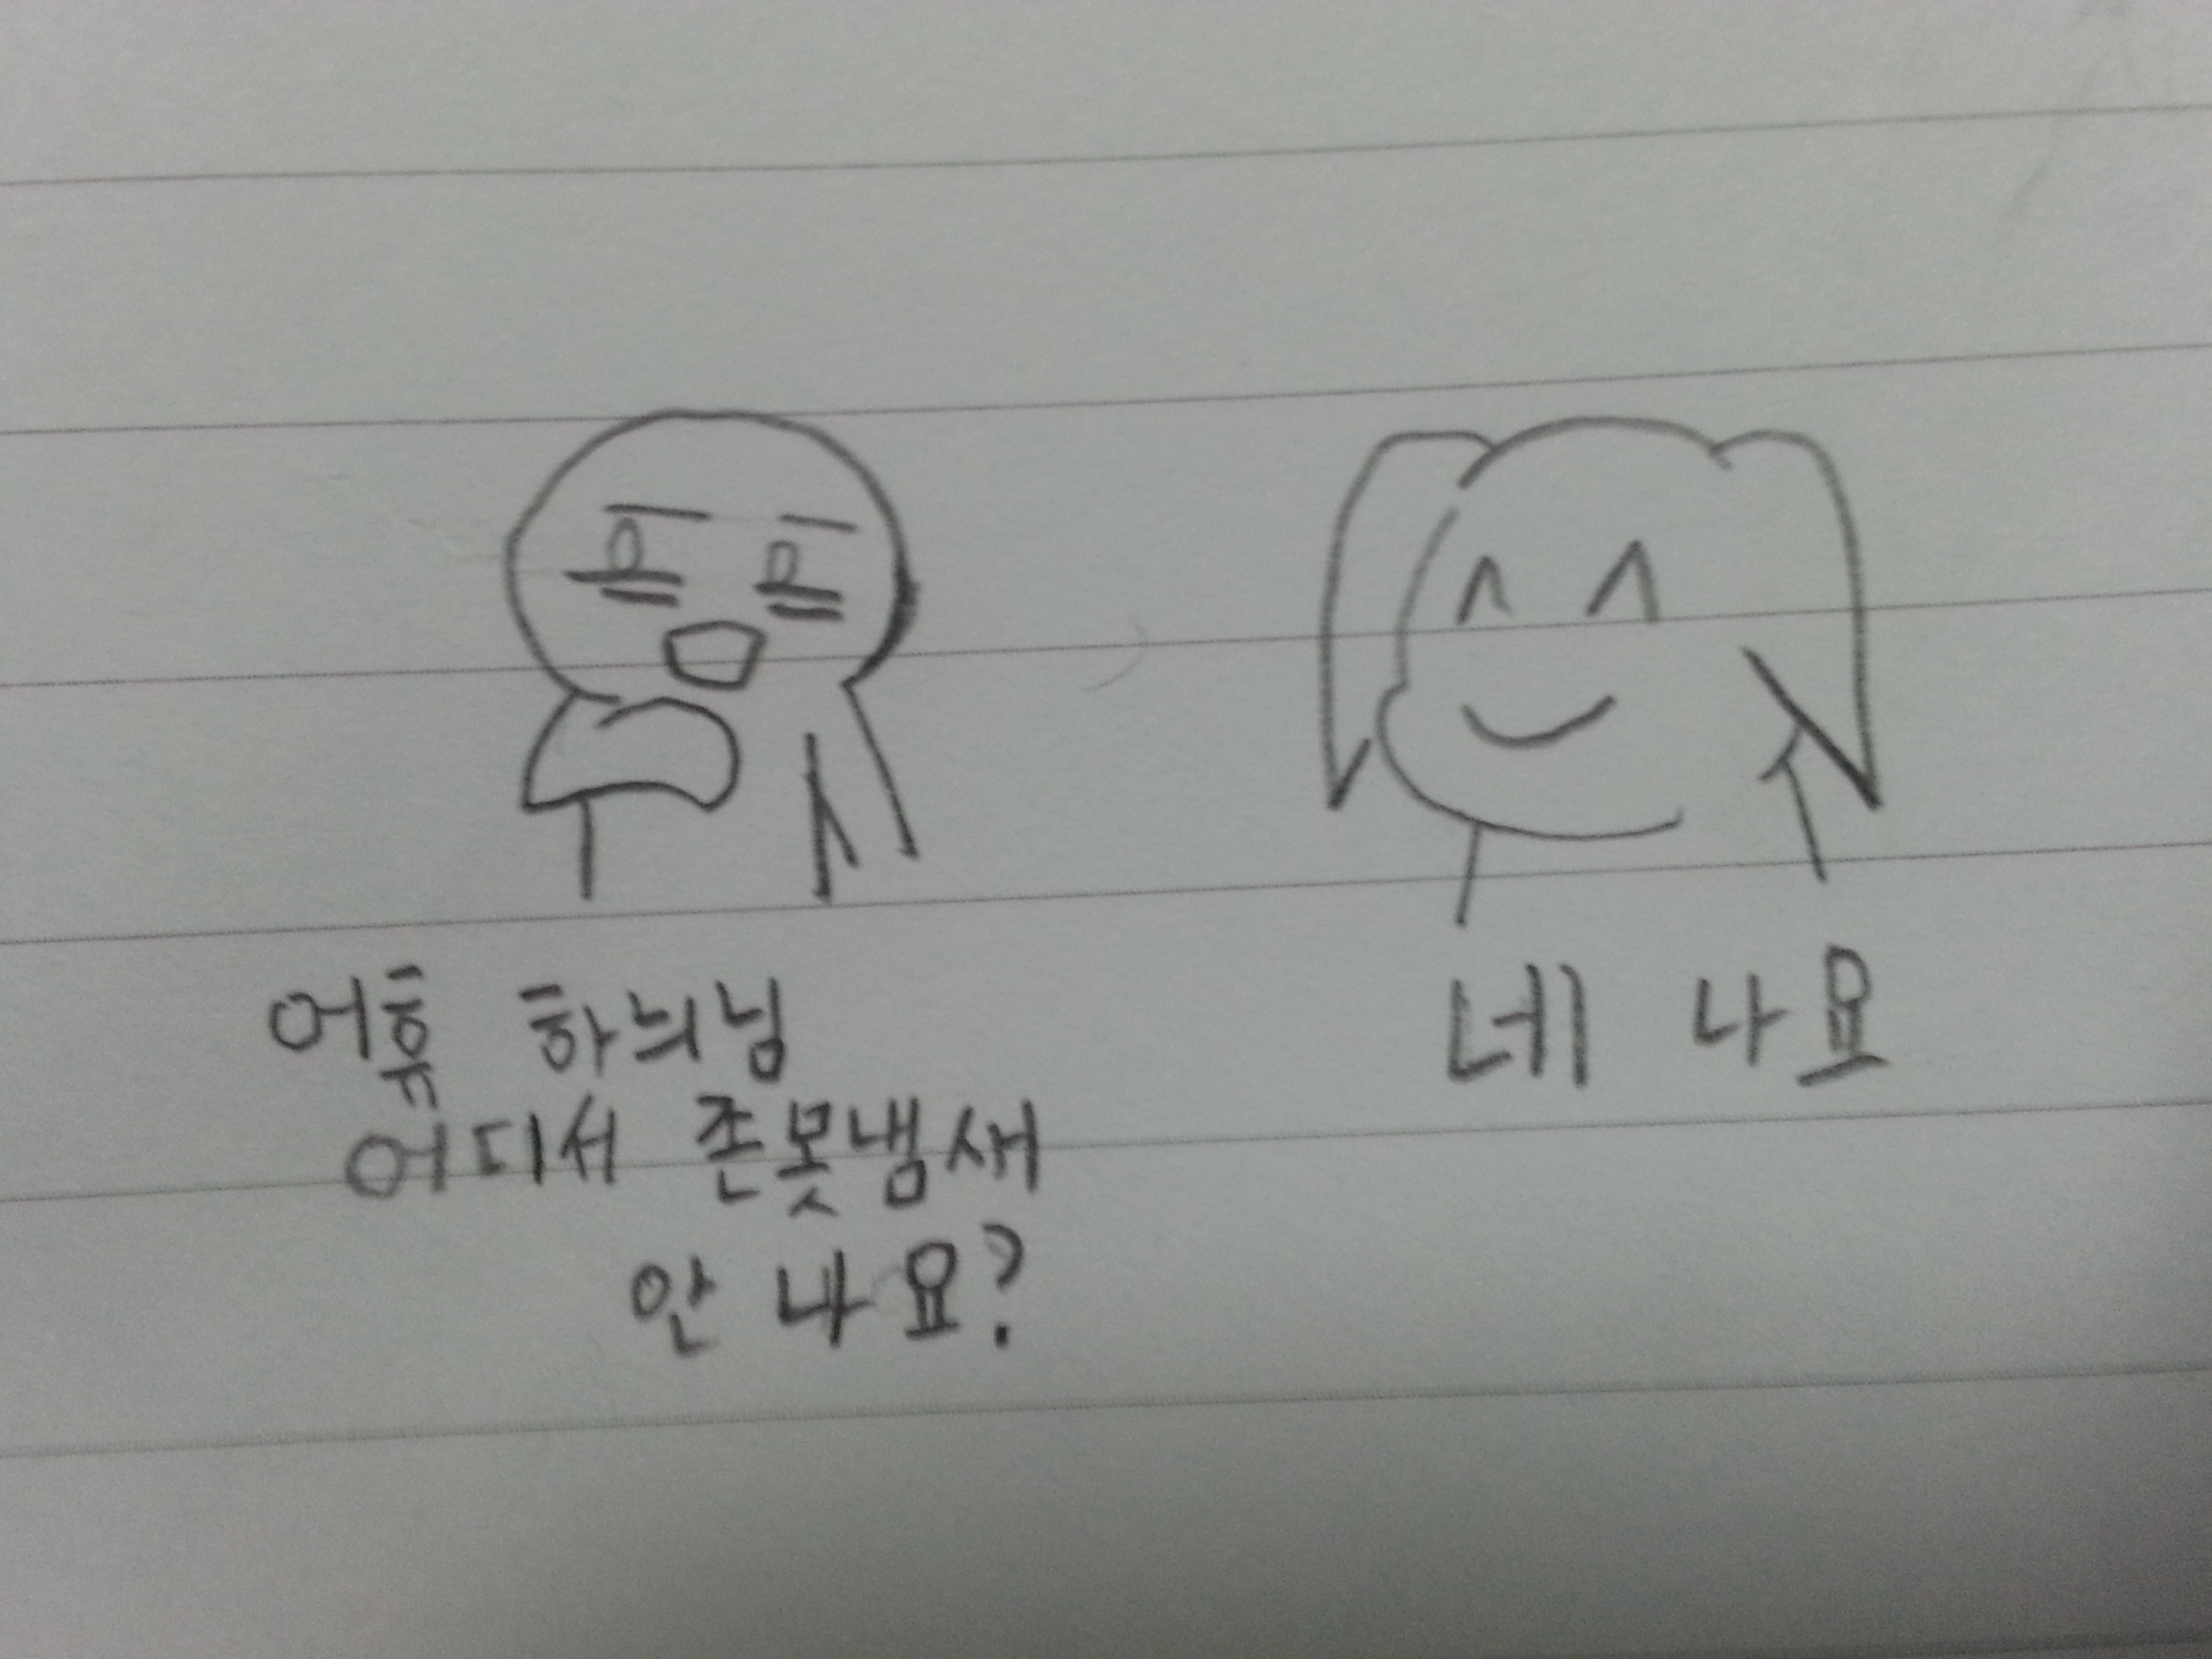 어휴 하늬님
어디서 존못냄새
안 나요?
네 나요